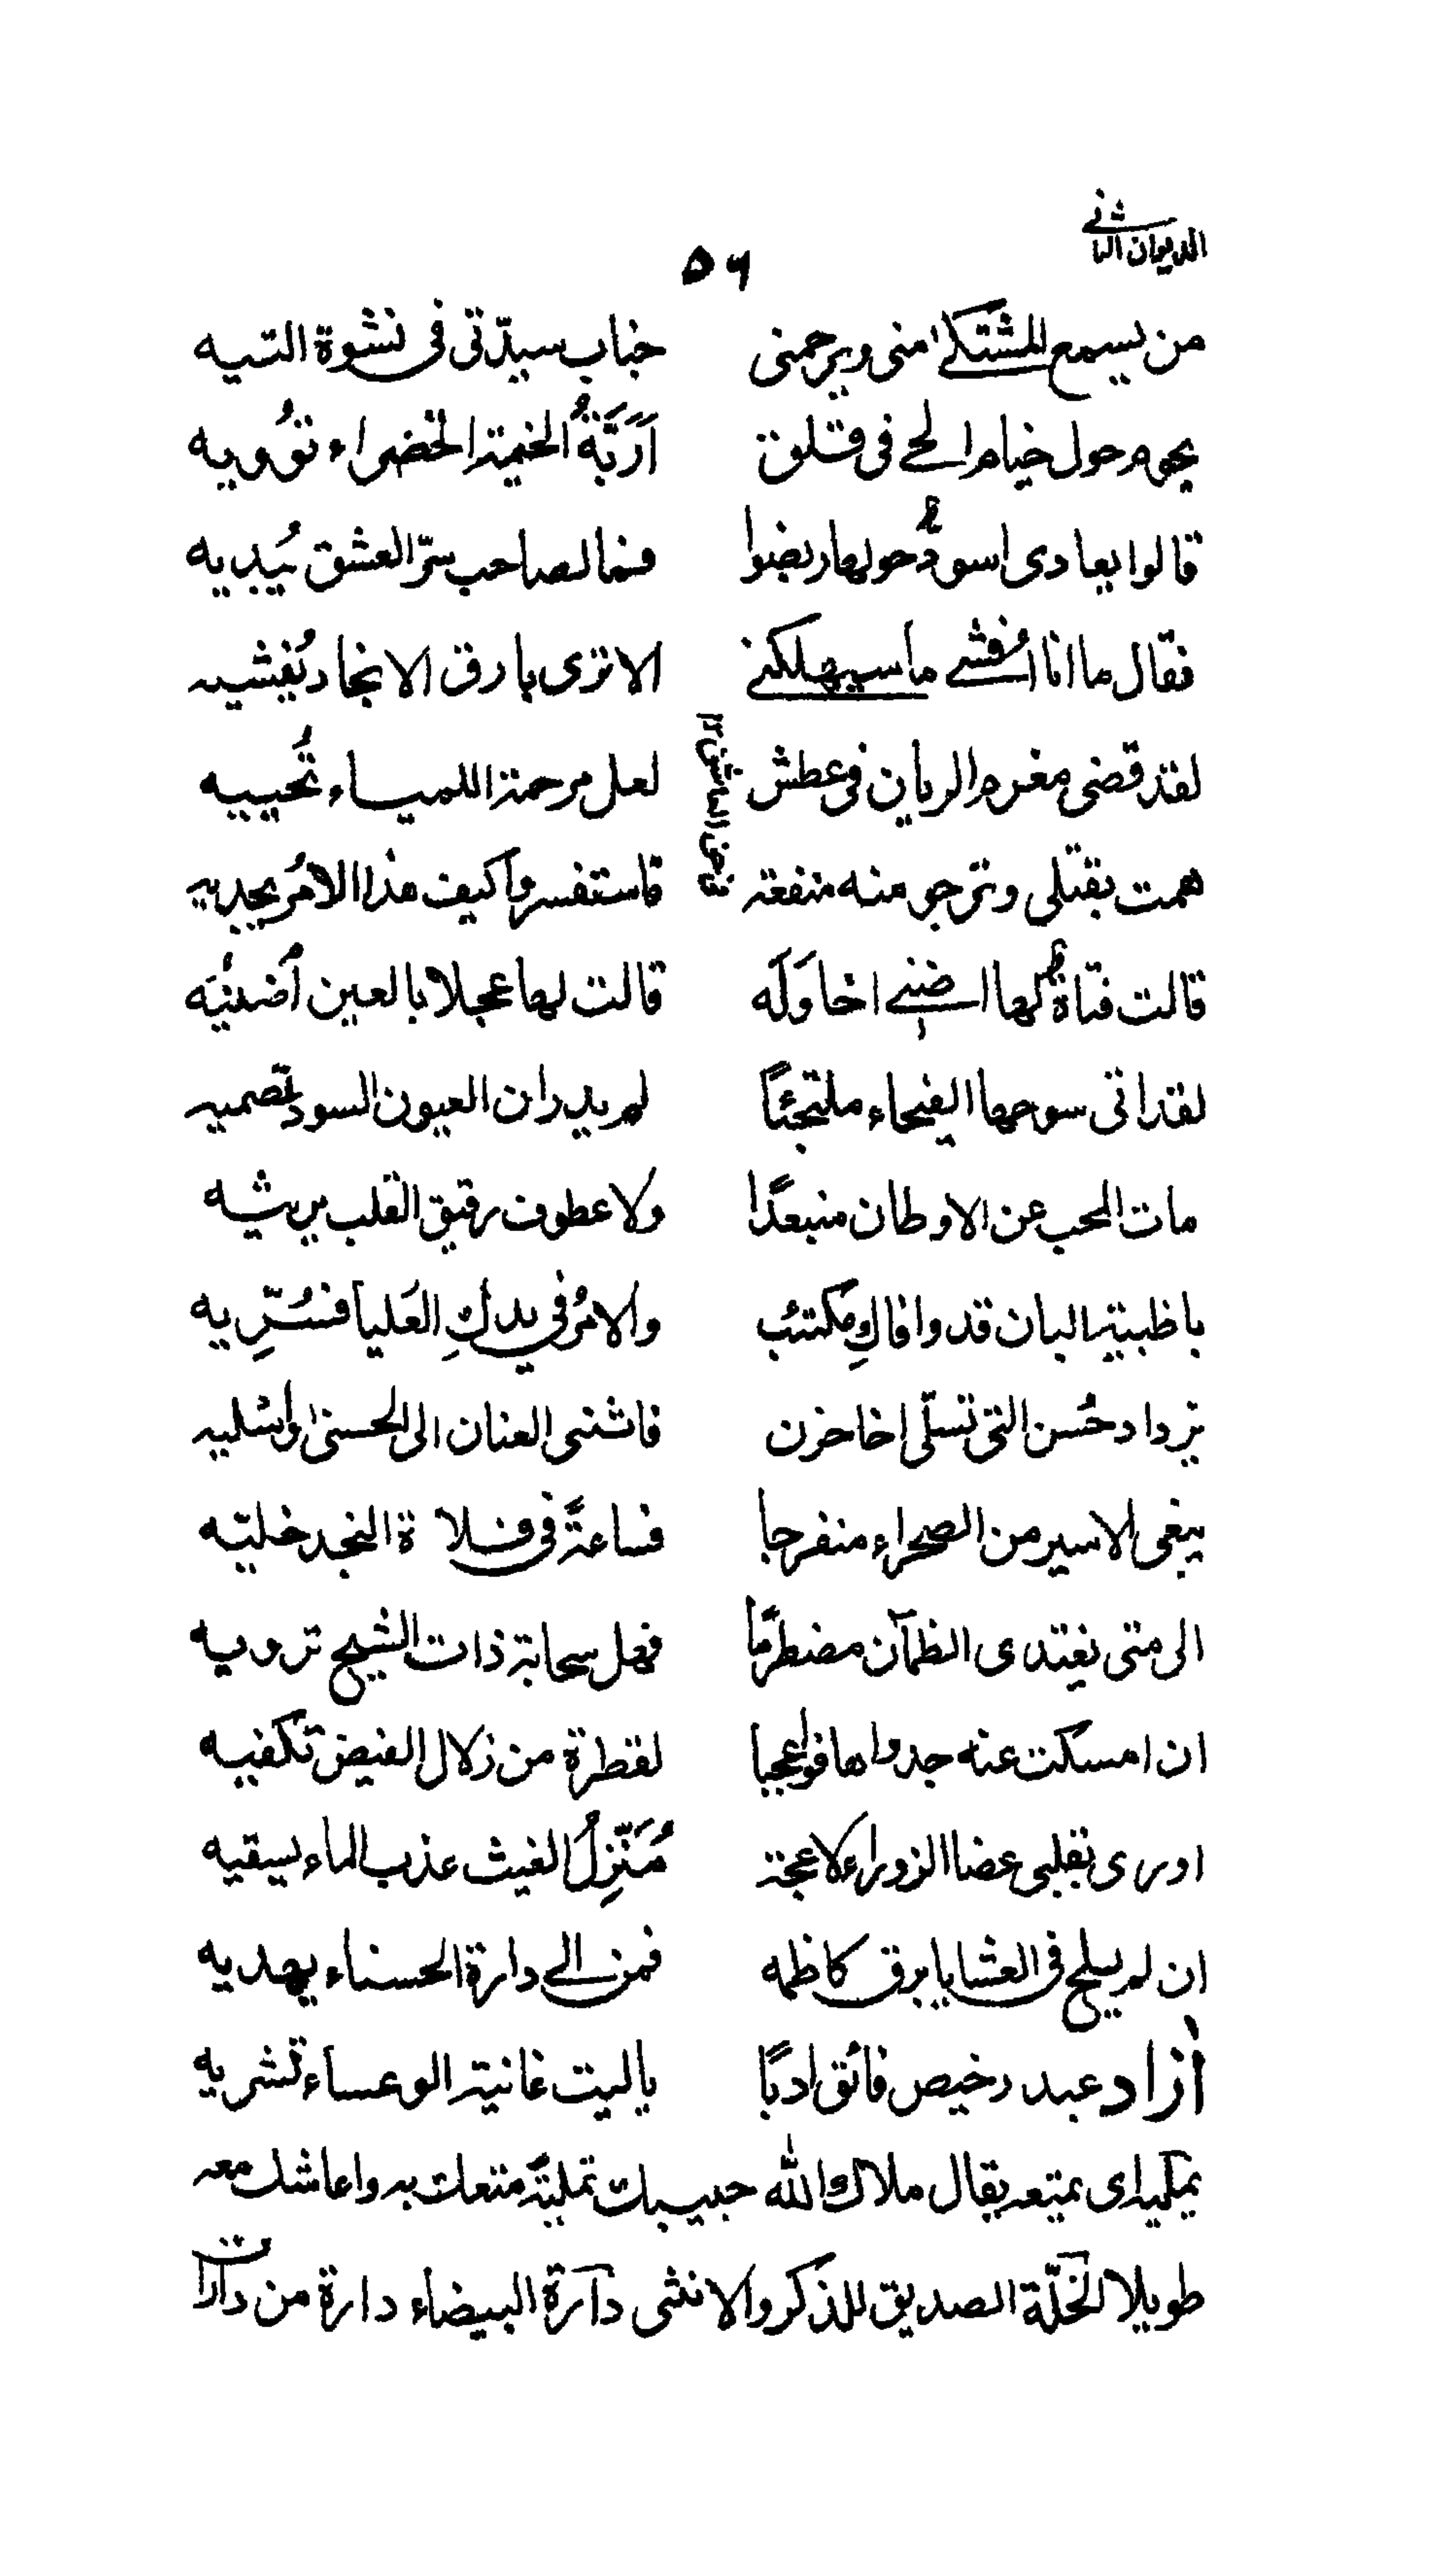 الديوان الثانے
۵۶
من يسمع المشتكىٰ منى ويرحمنى جناب سيدّتى فى نشوة التيه
يحوم حول خيام الحے فى قلق اَرَبَّةُ الخيمة الخضراء تؤُويه
قالوا يعادى اسودٌ حولها ربضوا فما لصاحب سرّ العشق يُبديه
فقال ما انا اُفشے ما سيهلكنے الا ترى بارق الانجاد يُفشيه
لقد قضى مغرم الريان فى عطش لعل مرحمة اللمياء تُحييه
همت بقتلى وترجو منه منفعة فاستفسروا كيف هذا الامرُ يجديه
قالت فتاةٌ لها اضنے اخا وَلَه قالت لها عجلا بالعين اُضنيَه
لقد اتى سوحها الفيحاء ملتجئًا لم يدر ان العيون السود تصميه
مات المحب عن الاوطان منبعدًا ولا عطوف رقيق القلب يرثيه
يا ظبية البان قد وافاكِ مكتئب والامرُ فى يدكِ العَليا فسُرِّيه
يزداد حُسن التى تسلّى اخا حزن فاثنى العنان الى الحسنىٰ واسليه
يبغى الاسير من الصحراء منفرجا فساعةً فى فلاة النجد خليّه
الى متى يغتدى الظمآن مضطرمًا فهل سحابة ذات الشيح ترويه
ان امسكت عنه جدواها فوا عجبا لقطرة من زلال الفيض تكفيه
ادرى بقلبى غضا الزوراء لاعجة مُنَزِّلُ الغيث عذب الماء يسقيه
ان لم يلح فى العشايا برق كاظمه فمن الے دارة الحسناء يهديه
اٰزاد عبد رخيص فائق ادبًا ياليت غانية الوعساء تشريه
يمليه اى يمتعه يقال ملاك الله حبيبك تملية متعك به واعاشك معه
طويلا الخلّة الصديق للذكر والانثى دارة البيضاء دارة من دارات